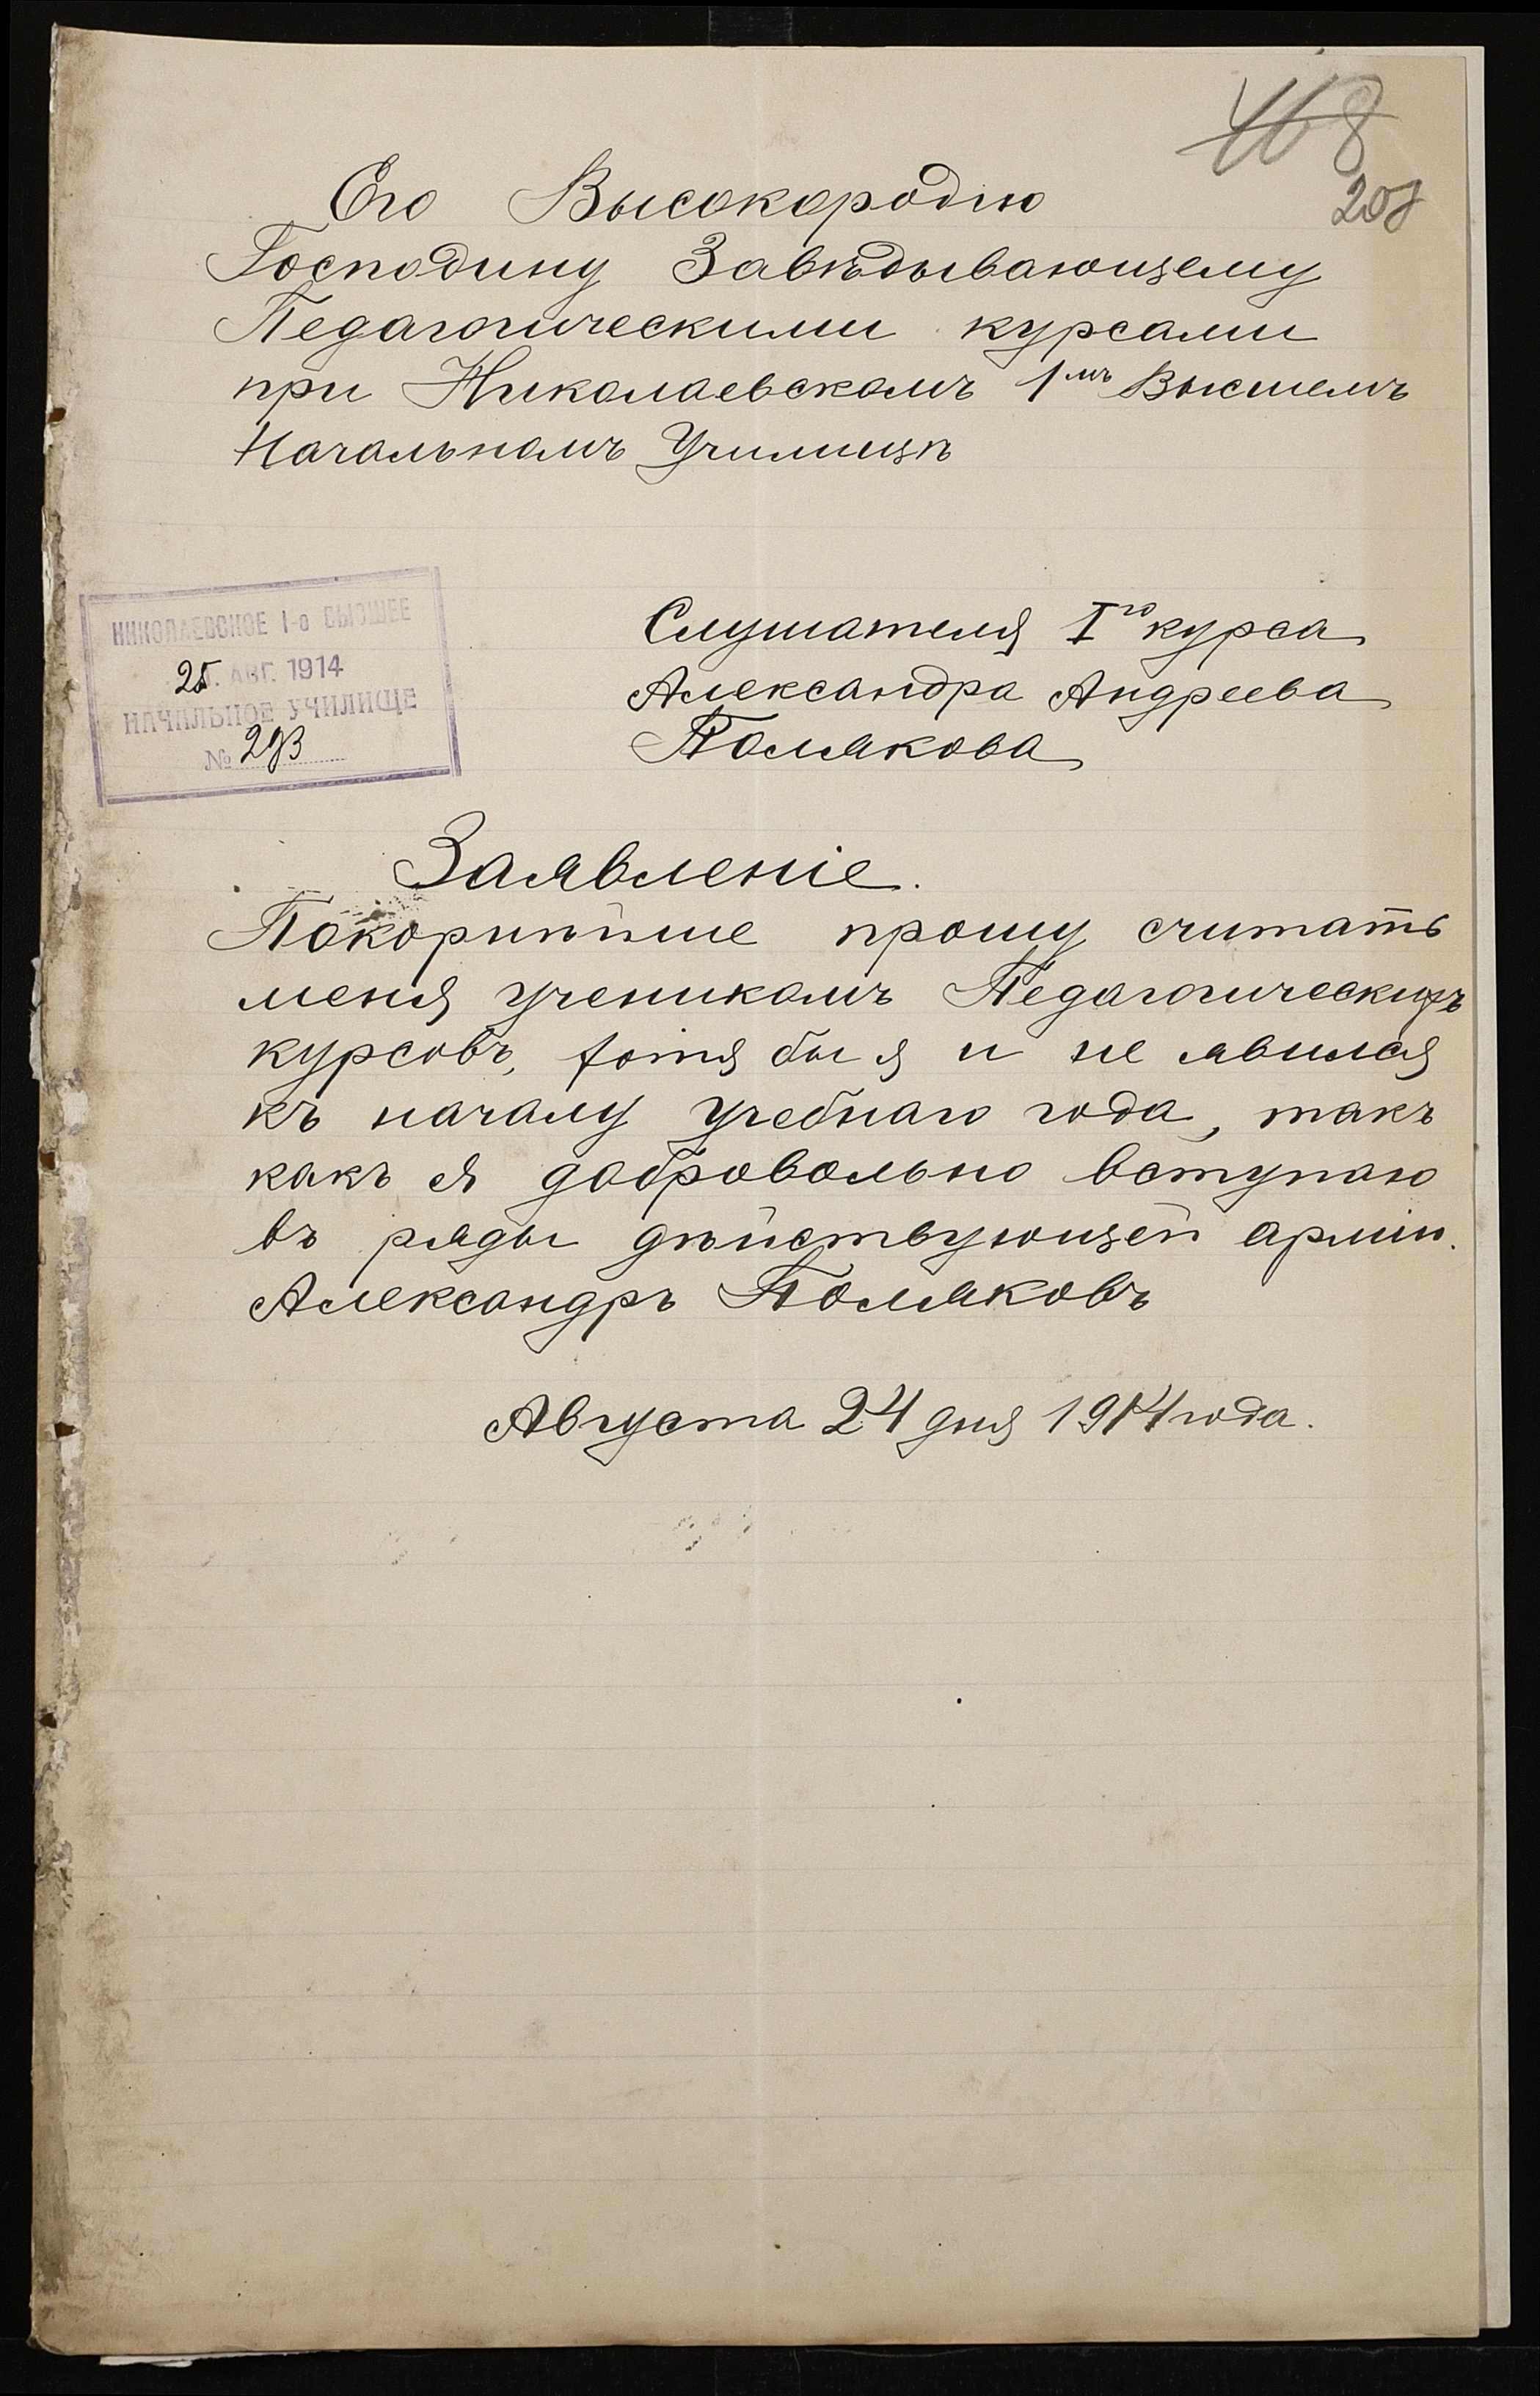 468
208
Его Высокородію
Господину Завѣдывающему
Педагогическими курсами
при Николаевскомъ 1мъ Высшемъ
Начальномъ Училищѣ
НИКОЛАЕВСКОЕ 1-о ВЫСШЕЕ
25. АВГ. 1914
НАЧАЛЬНОЕ УЧИЛИЩЕ
№ 293
Слушателя Iго курса
Александра Андреева
Полякова
Заявленіе.
Покорнѣйше прошу считать
меня ученикомъ Педагогическихъ
курсовъ, хотя бы я и не явился
къ началу учебнаго года, такъ
какъ я добровольно вступаю
въ ряды дѣйствующей арміи.
Александръ Поляковъ
Августа 24 дня 1914 года.